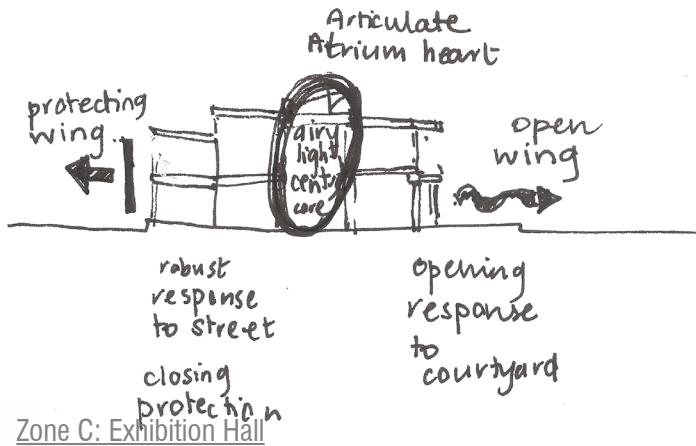 Articulate
Atrium heart
protecting
wing
airy
light
centre
core
open
wing
robust
response
to street
closing
protection
opening
response
to
courtyard
Zone C: Exhibition Hall